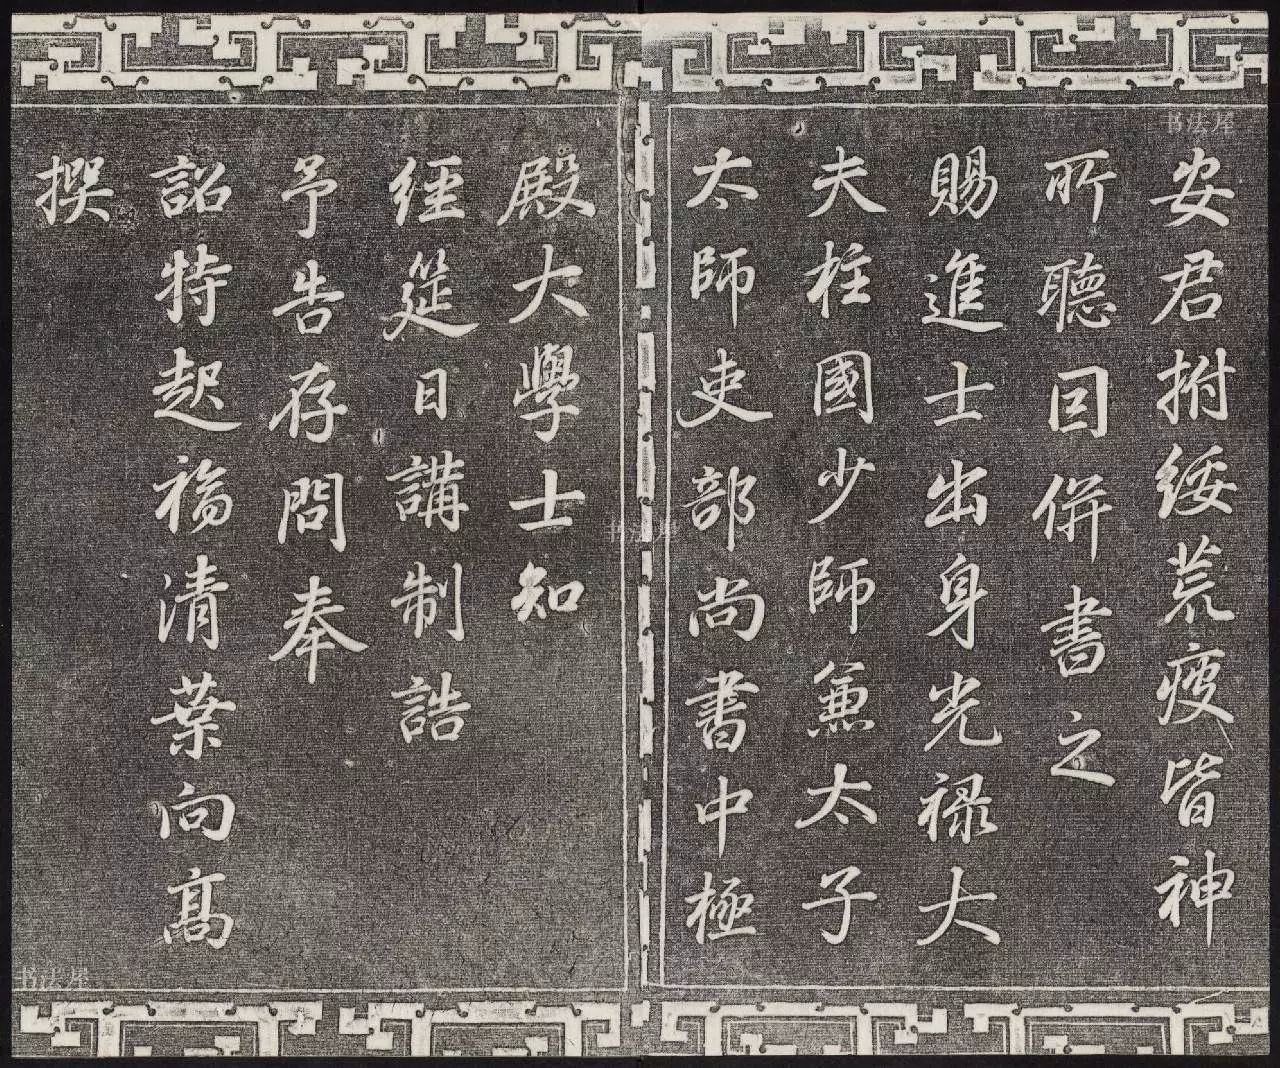 安君拊綏荒疫皆神
所聽因併書之
賜進士出身光祿大
夫柱國少師兼太子
太師吏部尚書中極
殿大學士知
經筵日講制誥
予告存問奉
詔特起福清葉向高
撰
书法屋
书法屋
书法屋